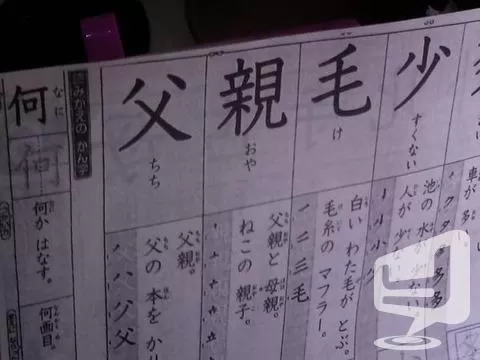 車が多い。
多多
少
すくない
池の水が少ない。
人が少ない。
毛
け
白いわた毛がとぶ。
毛糸のマフラー。
一二三毛
親
おや
父親と母親。
ねこの親子。
父
ちち
父親。
父の本をかり
ハグ父
みかえのかん字
何
なに
何
何かはなす。
何面目。